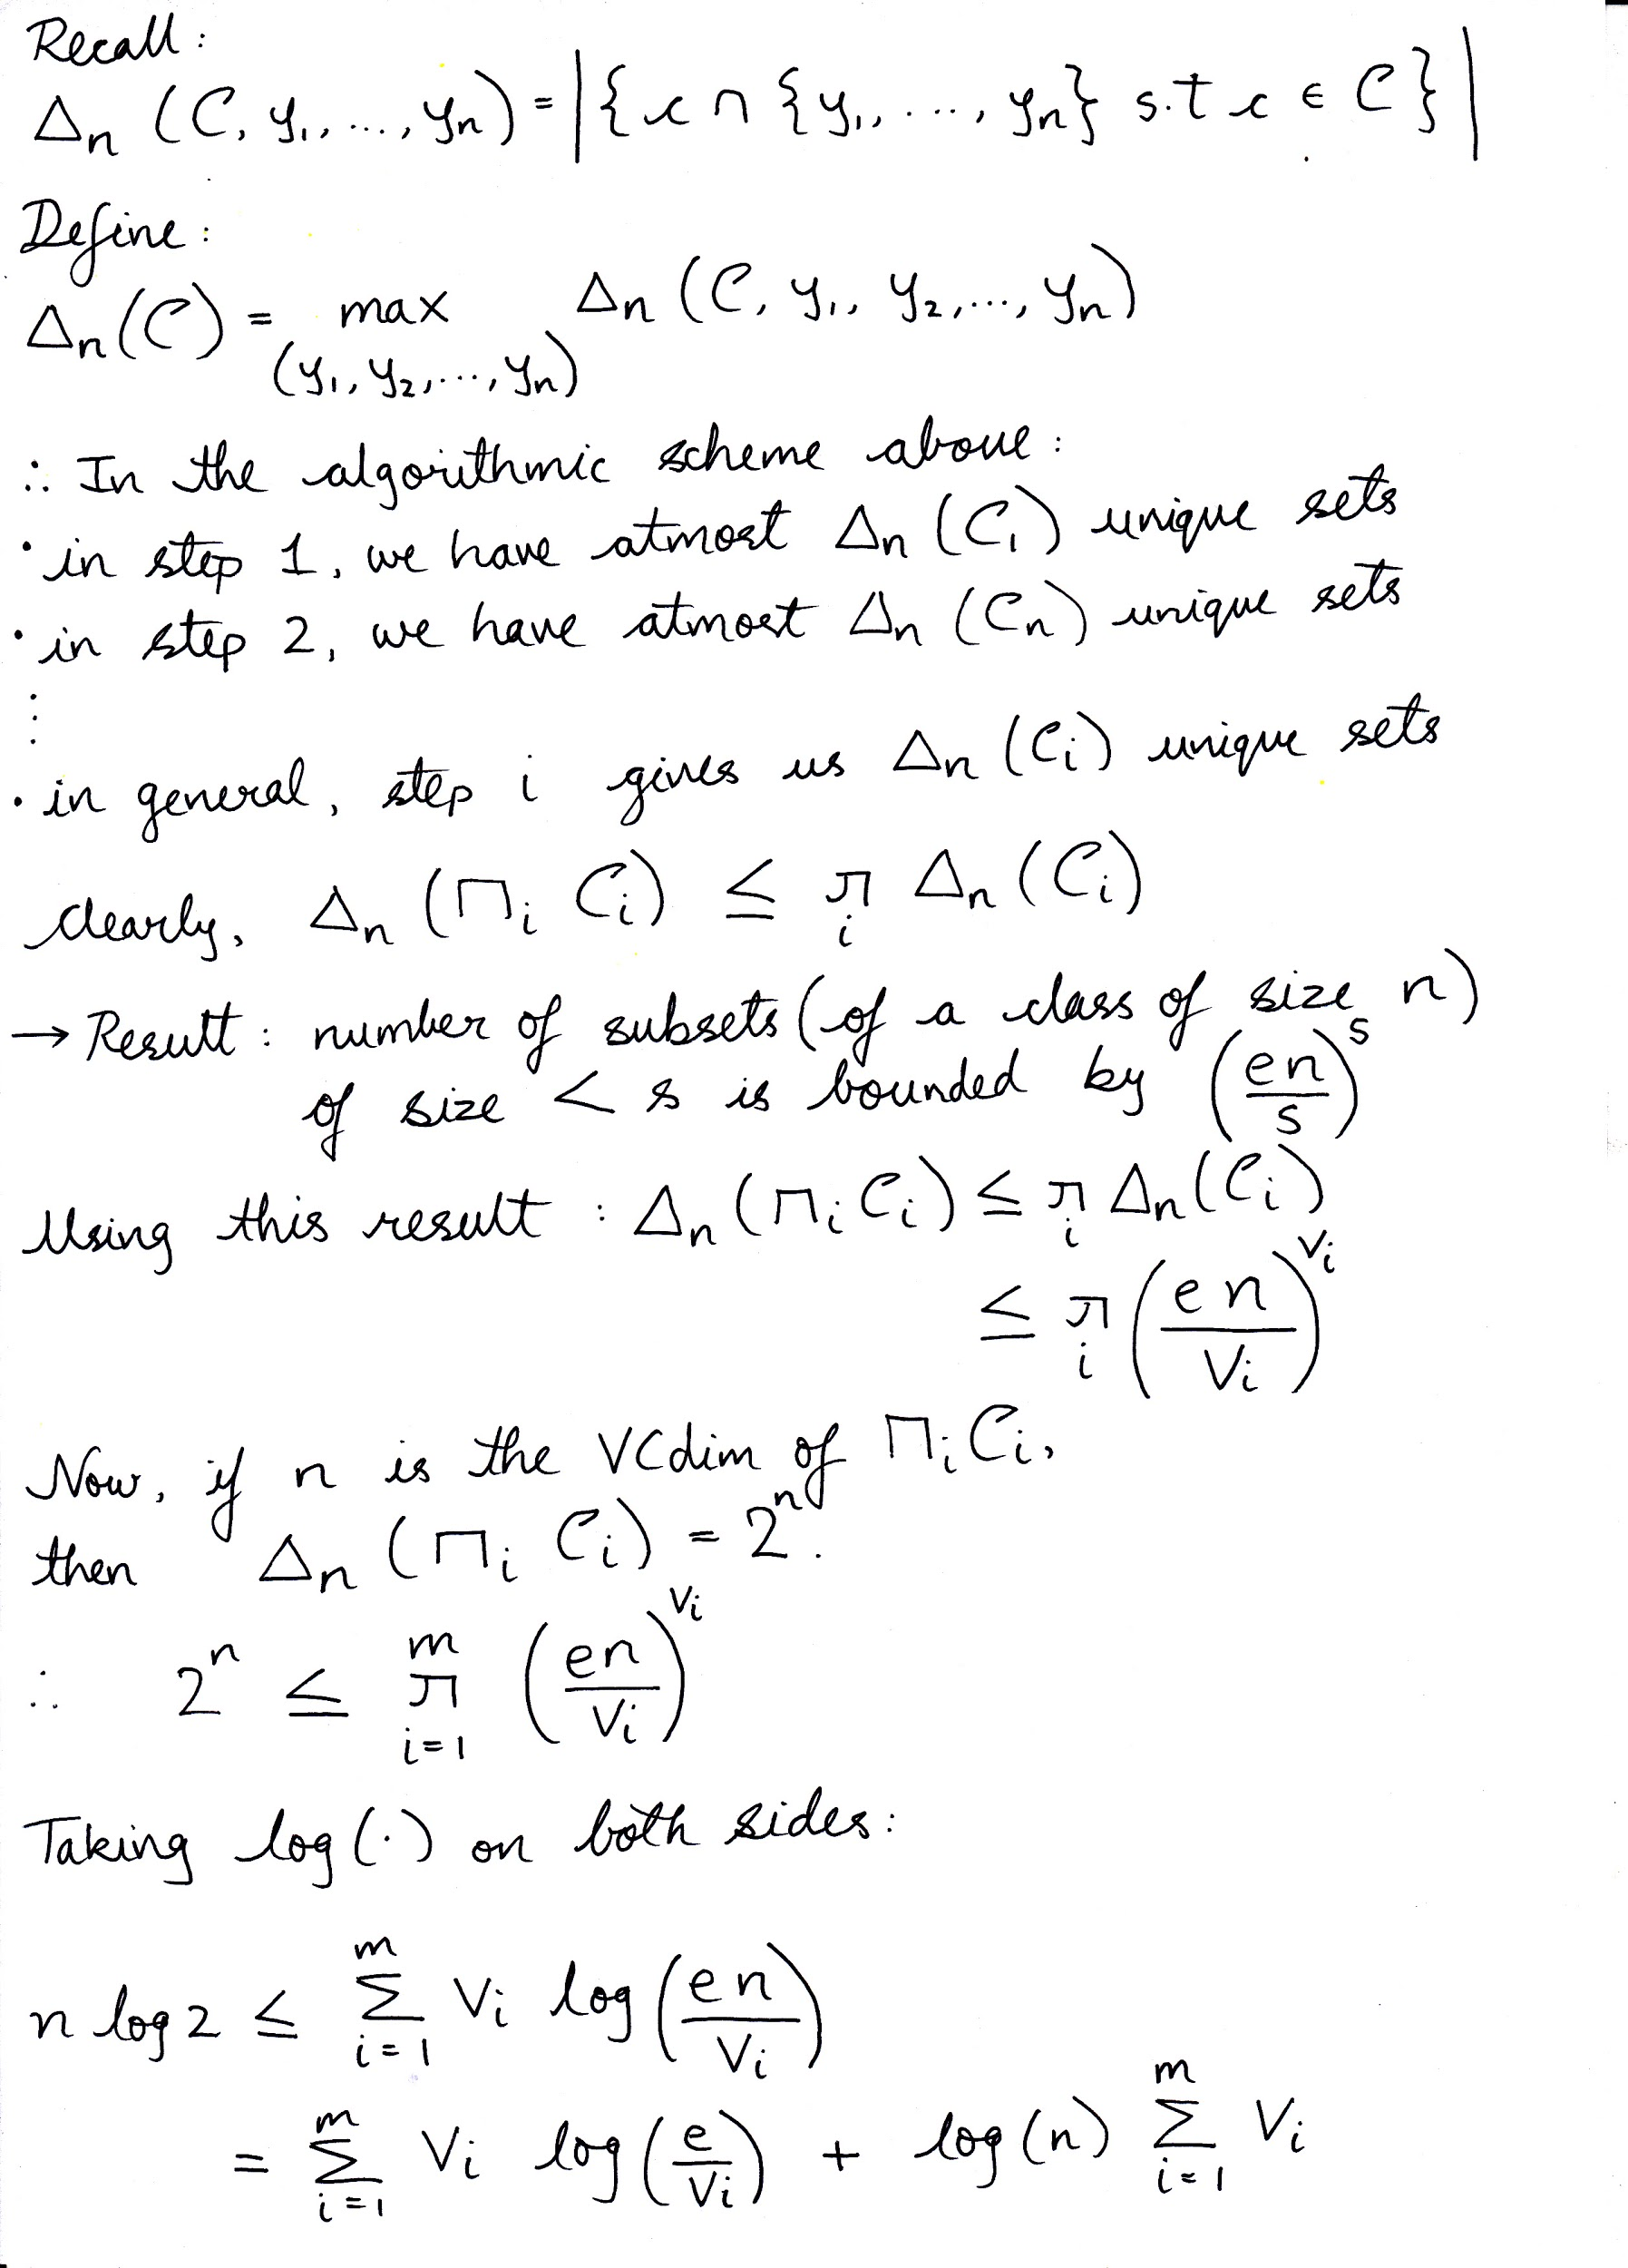 Recall:
Δn (C, y1, ..., yn) = |{c ∩ {y1, ..., yn} s.t c ∈ C}|
Define:
Δn(C) = max Δn (C, y1, y2, ..., yn)
(y1, y2, ..., yn)
∴ In the algorithmic scheme above:
• in step 1, we have atmost Δn (C1) unique sets
• in step 2, we have atmost Δn (Cn) unique sets
⋮
• in general, step i gives us Δn (Ci) unique sets
clearly, Δn (⊓i Ci) ≤ π_i Δn (Ci)
→ Result: number of subsets (of a class of size n)
of size < s is bounded by (en/s)^s
Using this result: Δn (⊓i Ci) ≤ π_i Δn (Ci)
≤ π_i (en/Vi)^Vi
Now, if n is the VCdim of ⊓i Ci,
then Δn (⊓i Ci) = 2^n.
∴ 2^n ≤ π_{i=1}^{m} (en/Vi)^Vi
Taking log(·) on both sides:
n log 2 ≤ Σ_{i=1}^{m} Vi log (en/Vi)
= Σ_{i=1}^{m} Vi log (e/Vi) + log(n) Σ_{i=1}^{m} Vi